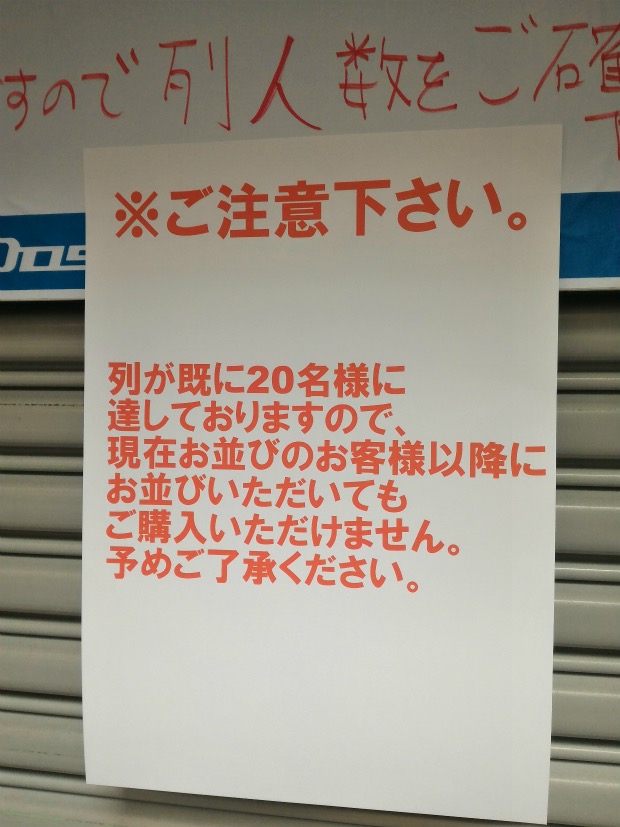 すので列人数をご確
※ご注意下さい。
列が既に20名様に
達しておりますので、
現在お並びのお客様以降に
お並びいただいても
ご購入いただけません。
予めご了承ください。